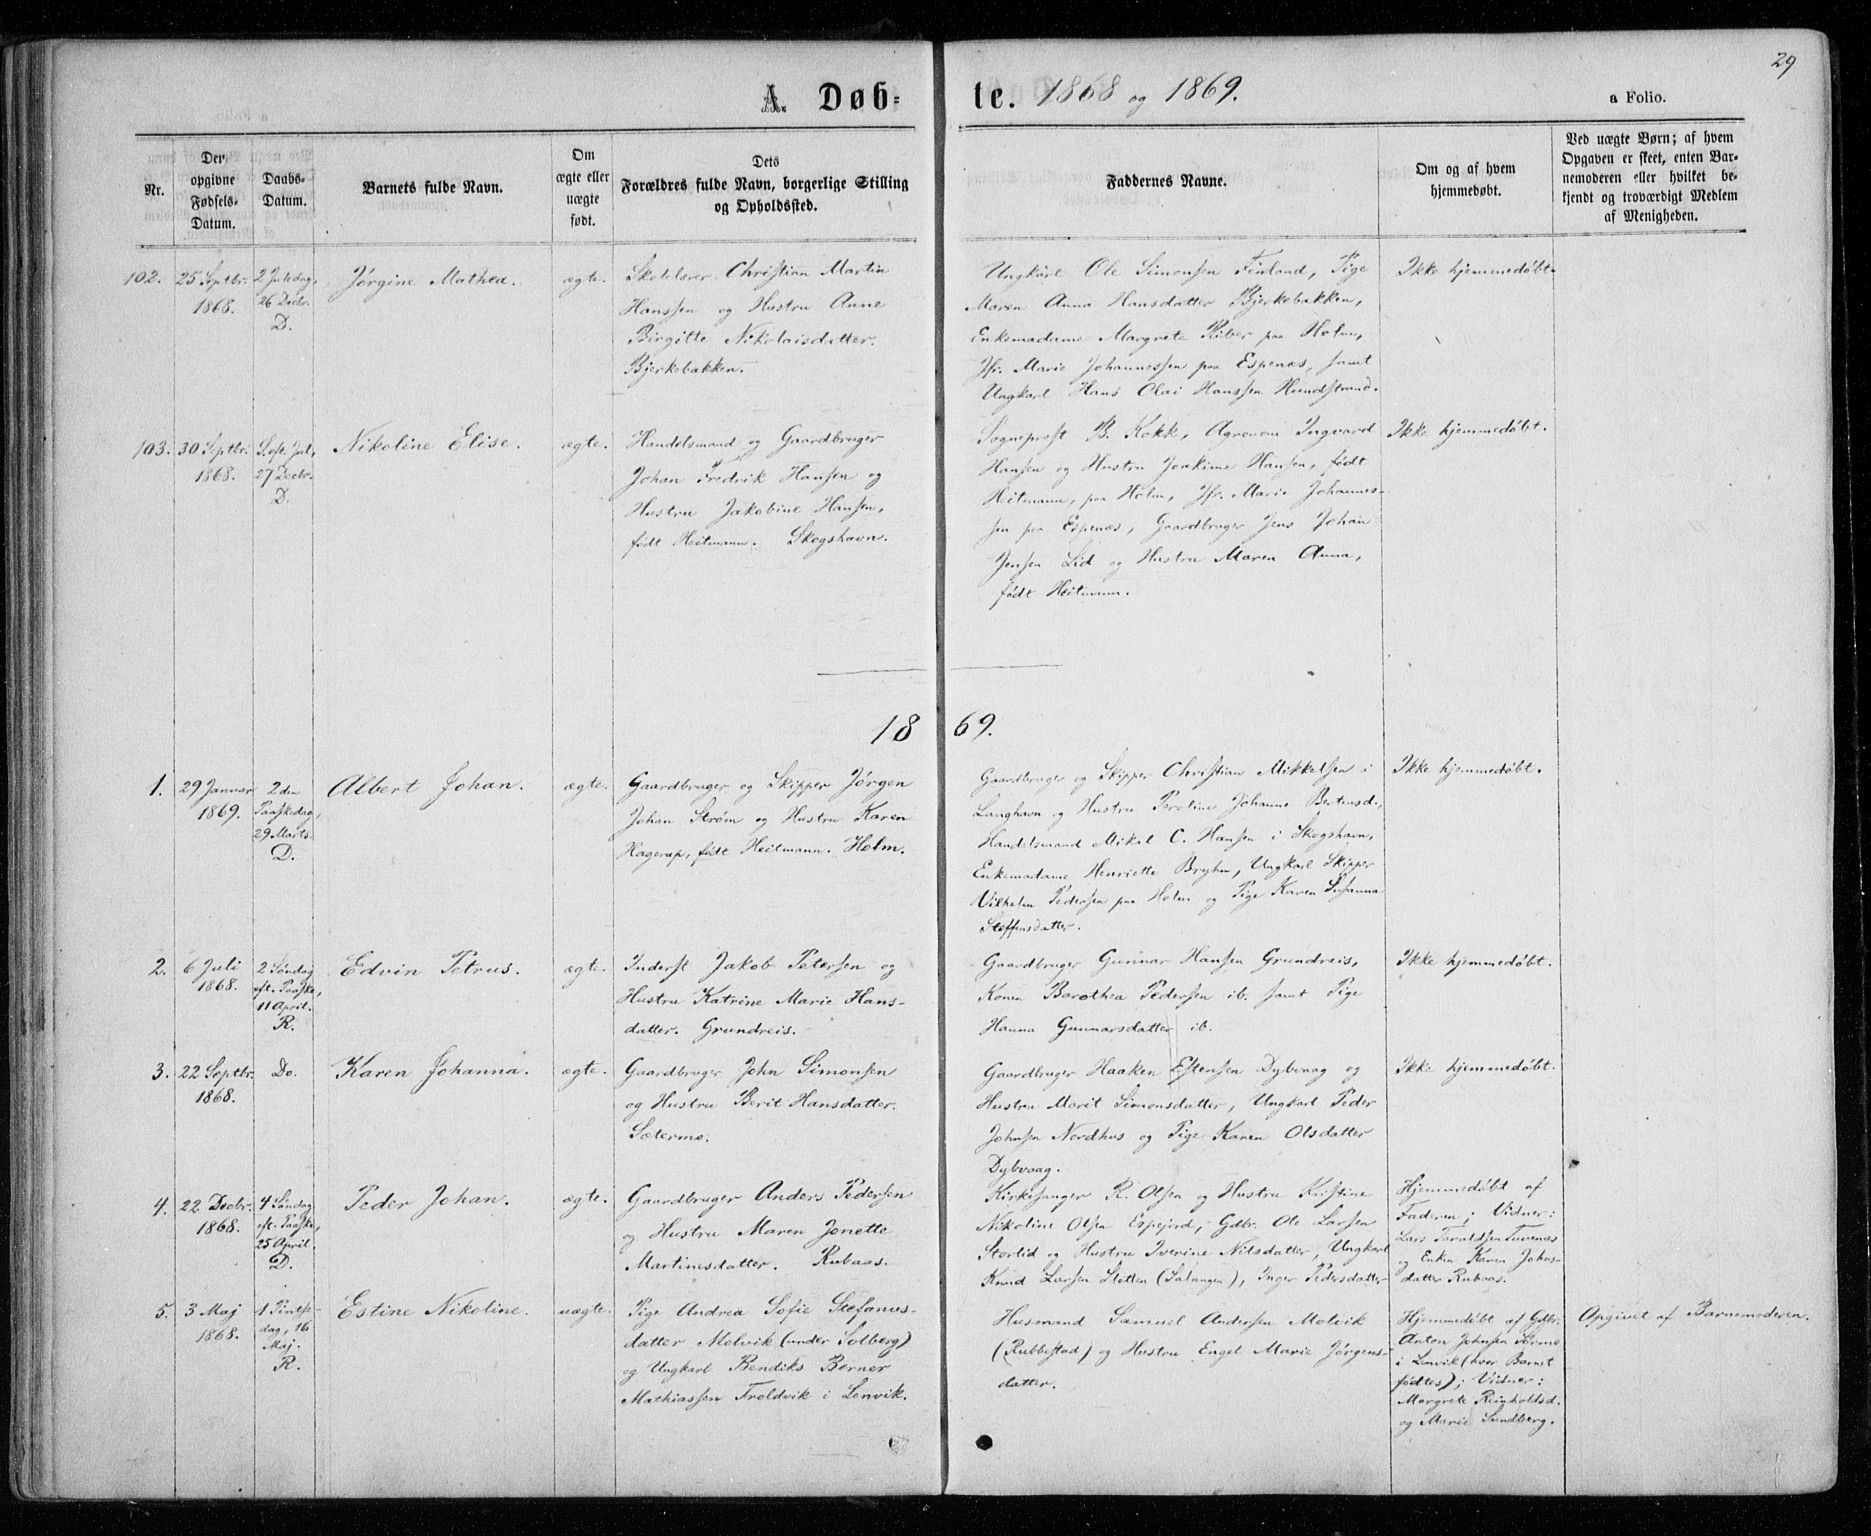 29
A. Døb=
te. 1868 og 1869.
a Folio.
Nr.
Den opgivne Fødsels-Datum.
Daabs-Datum.
Barnets fulde Navn.
Om ægte eller uægte født.
Dets
Forældres fulde Navn, borgerlige Stilling
og Opholdssted.
Faddernes Navne.
Om og af hvem
hjemmedøbt.
Ved uægte Børn; af hvem
Opgaven er skeet, enten Bar-
nemoderen eller hvilket be-
kjendt og troværdigt Medlem
af Menigheden.
102.
25 Septbr.
1868.
2 Juledag,
26 Decbr.
D.
Jørgine Mathea.
ægte.
Skolelærer Christian Martin
Hanssen og Hustru Anne
Birgitte Nikolaisdatter.
Bjerkebakken.
Ungkarl Ole Simonsen Finland, Pige
Maren Anna Hansdatter Bjerkebakken,
Enkemadame Margrete Riber paa Holm,
Jfr. Marie Johannessen paa Espenæs, samt
Ungkarl Hans Olai Hanssen Hundstrand.
Ikke hjemmedøbt.
103.
30 Septbr.
1868.
S. eft. Jul,
27 Decbr.
D.
Nikoline Elise.
ægte.
Handelsmand og Gaardbruger
Johan Fredrik Hansen og
Hustru Jakobine Hansen,
født Heitmann. Skogshavn.
Sogneprest B. Kokk, Agronom Ingvard
Hansen og Hustru Joakime Hansen, født
Heitmann, paa Holm, Jfr. Marie Johannes-
sen paa Espenæs, Gaardbruger Jens Johan
Jensen Lid og Hustru Maren Anna,
født Heitmann.
Ikke hjemmedøbt.
1869.
1.
29 Januar
1869.
2den
Paaskedag,
29 Marts.
D.
Albert Johan.
ægte.
Gaardbruger og Skipper Jørgen
Johan Strøm og Hustru Karen
Hagerup, født Heitmann. Holm.
Gaardbruger og Skipper Christian Mikkelsen i
Langhavn og Hustru Pernline Johanne Bertensd.,
Handelsmand Mikal C. Hansen i Skogshavn,
Enkemadame Henriette Bryhn, Ungkarl Skipper
Vilhelm Pedersen paa Holm og Pige Karen Susanna
Steffensdatter.
Ikke hjemmedøbt.
2.
6 Juli
1868.
2 Søndag
eft. Paaske,
11 April.
R.
Edvin Petrus.
ægte.
Inderst Jakob Petersen og
Hustru Katrine Marie Hans-
datter. Grundreis.
Gaardbruger Gunnar Hansen Grundreis,
Konen Barothea Pedersen ib. samt Pige
Hanna Gunnarsdatter ib.
Ikke hjemmedøbt.
3.
22 Septbr.
1868.
Do.
Karen Johanna.
ægte.
Gaardbruger John Simonsen
og Hustru Berit Hansdatter.
Sætermo.
Gaardbruger Haaken Estensen Dybvaag og
Hustru Marit Simonsdatter, Ungkarl Peder
Johnsen Nordhus og Pige Karen Olsdatter
Dybvaag.
Ikke hjemmedøbt.
4.
22 Decbr.
1868.
4 Søndag
eft. Paaske,
25 April.
D.
Peder Johan.
ægte.
Gaardbruger Anders Pedersen
og Hustru Maren Jonette
Martinesdatter. Rubaas.
Kirkesanger R. Olsen og Hustru Kristine
Nikoline Olsen Espejord, Gdbr. Ole Larsen
Storlid og Hustru Iverine Nilsdatter, Ungkarl
Knud Larsen Slotten (Salangen), Inger Pedersdatter
Hjemmedøbt af
Faderen; Vidner:
Lars Taraldsen Tuvenæs
og Enken Karen Johns-
datter Rubaas.
5.
3 Maj
1868.
1 Pintse-
dag, 16
Maj.
R.
Estine Nikoline.
uægte.
Pige Andrea Sofie Stefanus-
datter Molvik (under Solberg)
og Ungkarl Bendiks Berner
Mathiassen Troldvik i Lenvik.
Husmand Samuel Andersen Molvik
(Rubbestad) og Hustru Engel Marie Jørgens-
datter.
Hjemmedøbt af Gdbr.
Anton Johnsen Strømo
i Lenvik (hvor Barnet
fødtes); Vidner:
Margrete Reinholdtsd.
og Marie Sundberg.
Opgivet af Barnemoderen.